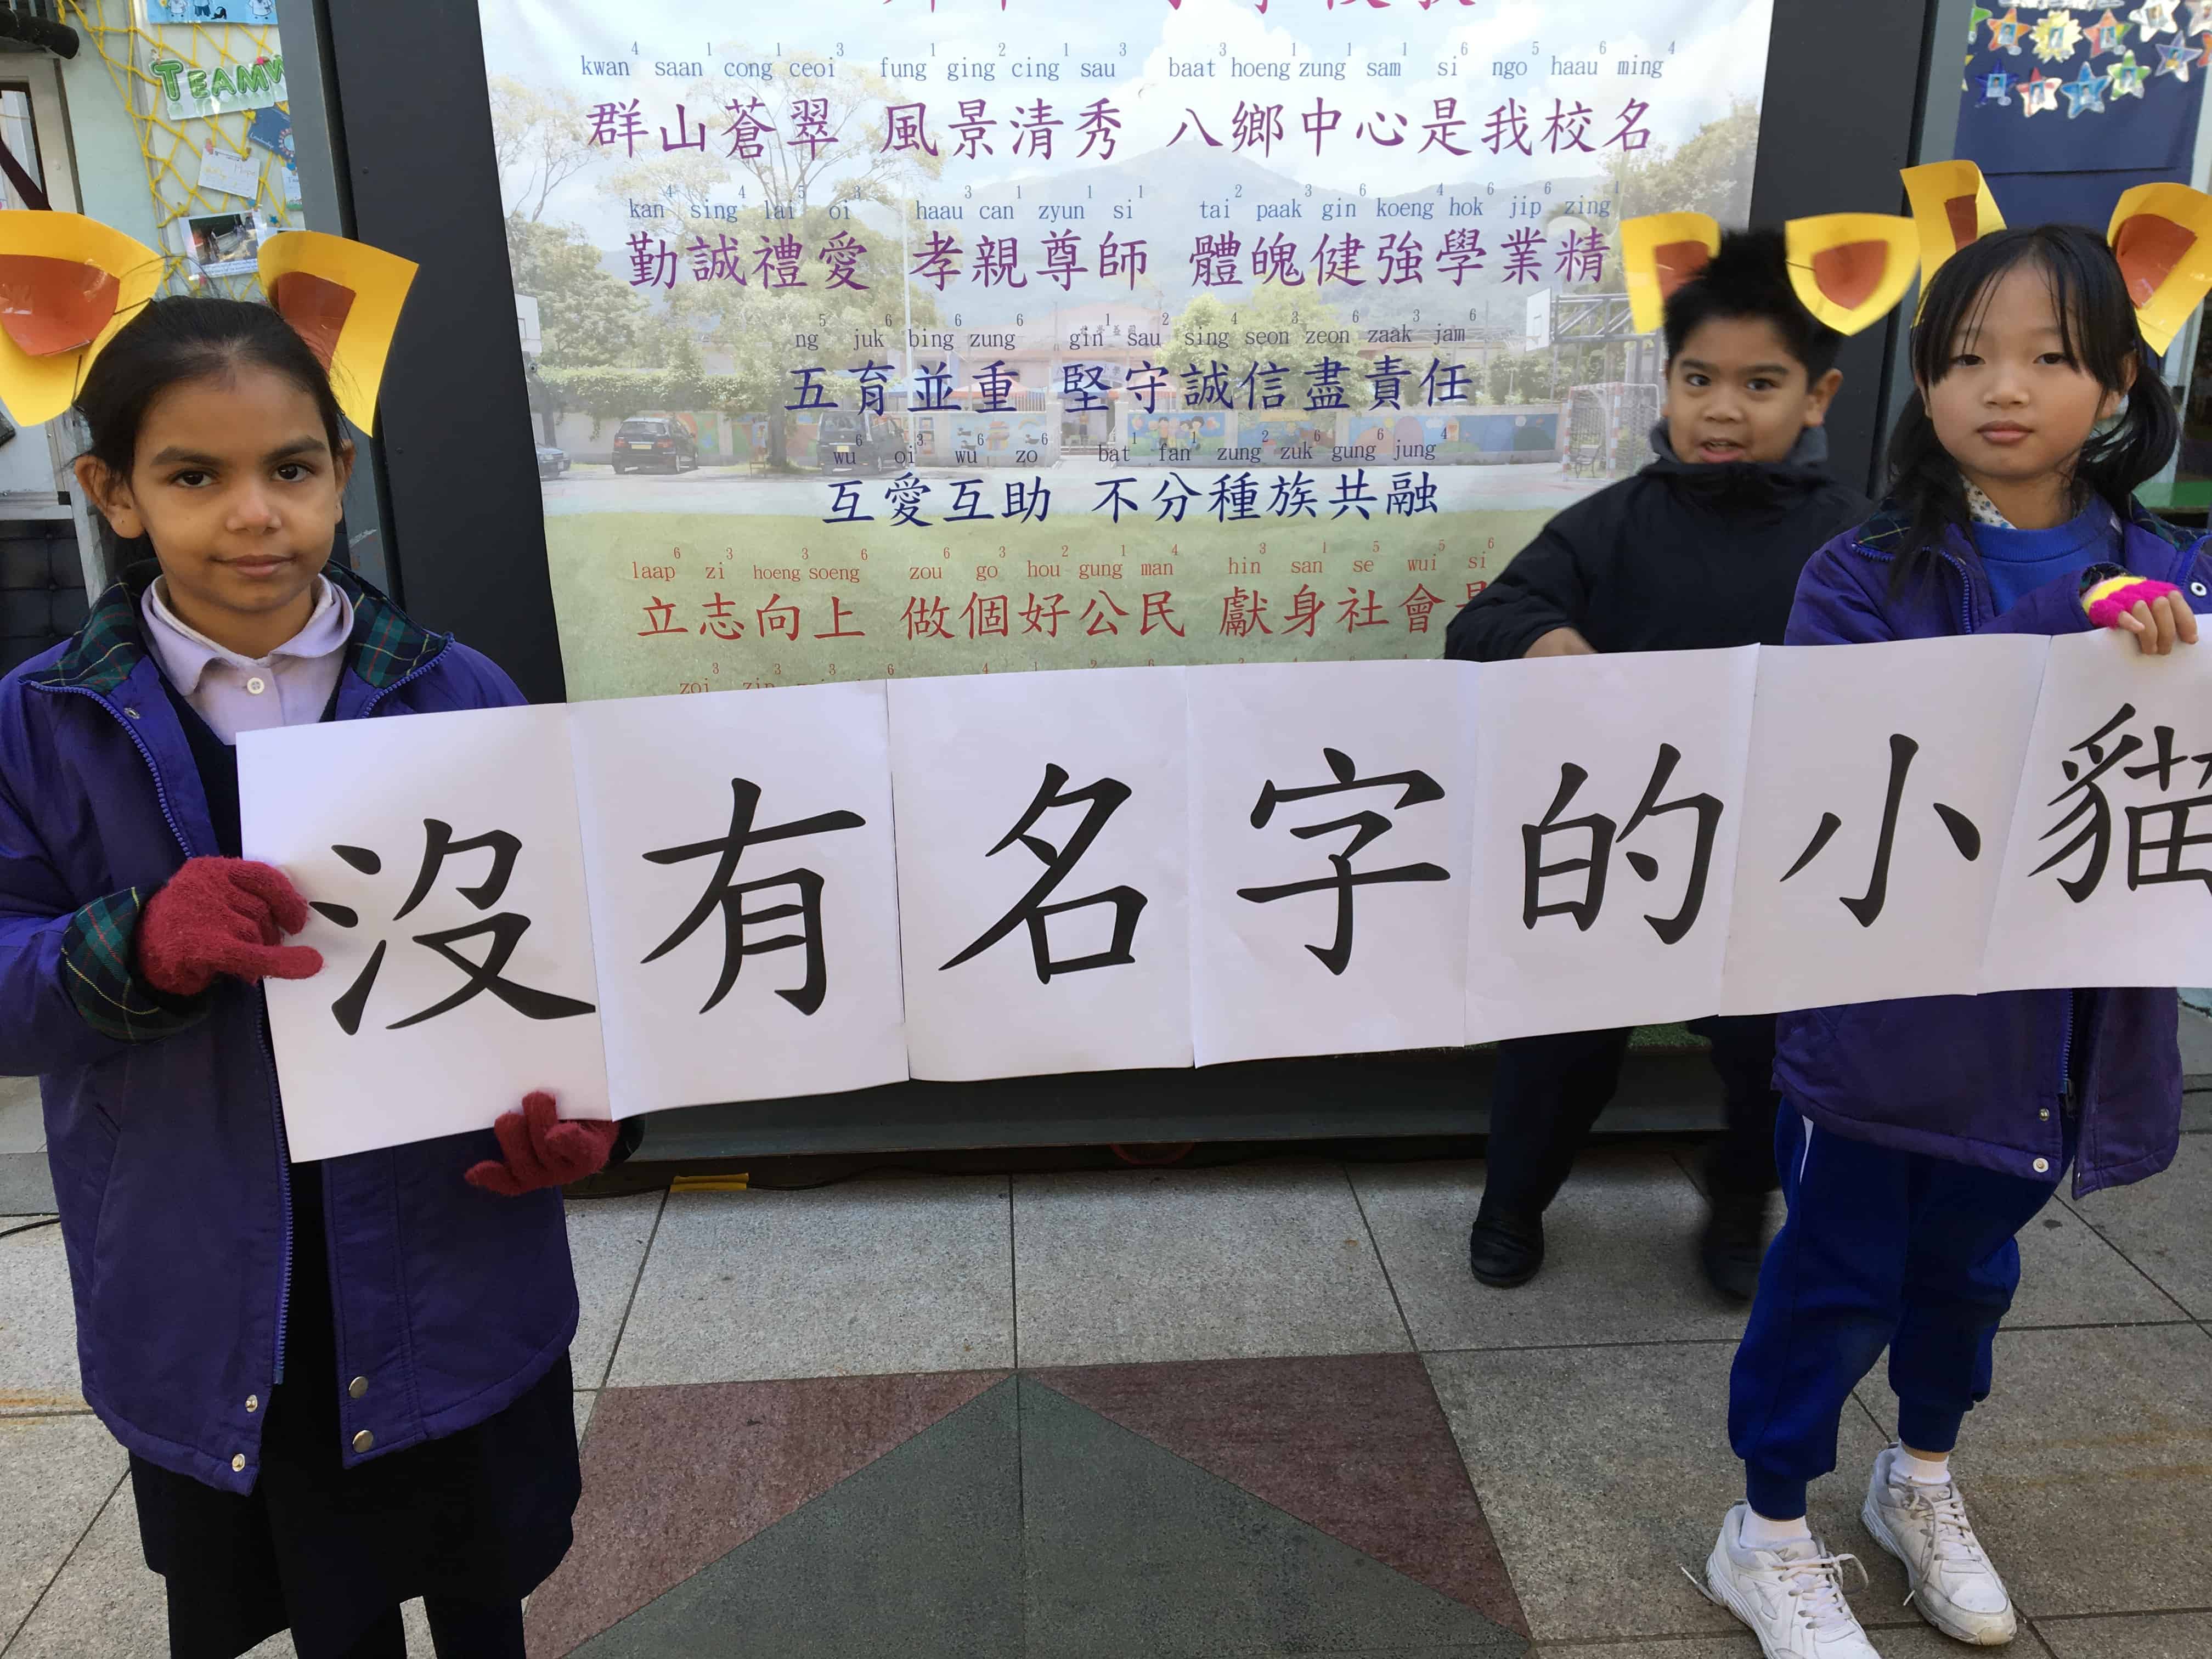 TEAMW
kwan4 saan1 cong1 ceoi3 fung1 ging2 cing1 sau3 baat3 hoeng1 zung1 sam1 si6 ngo5 haau6 ming4
群山蒼翠 風景清秀 八鄉中心是我校名
kan4 sing4 lai5 oi3 haau3 can1 zyun1 si1 tai2 paak3 gin6 koeng4 hok6 jip6 zing1
勤誠禮愛 孝親尊師 體魄健強學業精
ng5 juk6 bing6 zung6 gin1 sau2 sing4 seon3 zeon6 zaak3 jam6
五育並重 堅守誠信盡責任
wu6 oi3 wu6 zo6 bat1 fan1 zung2 zuk6 gung6 jung4
互愛互助 不分種族共融
laap6 zi3 hoeng3 soeng6 zou6 go3 hou2 gung1 man4 hin3 san1 se5 wui5 si6
立志向上 做個好公民 獻身社會是
沒有名字的小貓